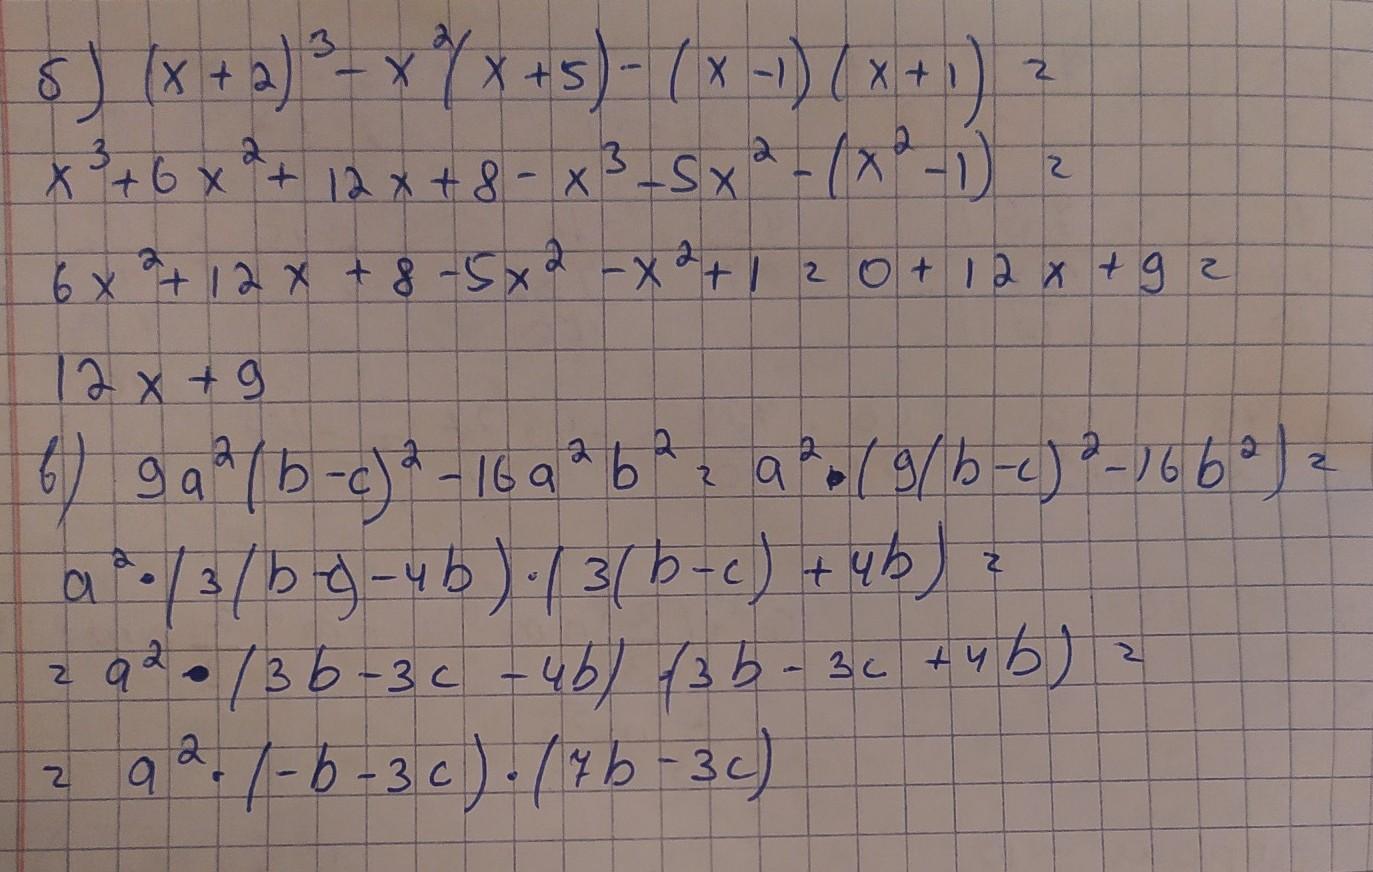 б) (x + 2)³ - x²(x + 5) - (x - 1)(x + 1) =
x³ + 6x² + 12x + 8 - x³ - 5x² - (x² - 1) =
6x² + 12x + 8 - 5x² - x² + 1 = 0 + 12x + 9 =
12x + 9
в) 9a²(b - c)² - 16a²b² = a² · (9(b - c)² - 16b²) =
a² · (3(b - c) - 4b) · (3(b - c) + 4b) =
= a² · (3b - 3c - 4b) · (3b - 3c + 4b) =
= a² · (-b - 3c) · (7b - 3c)